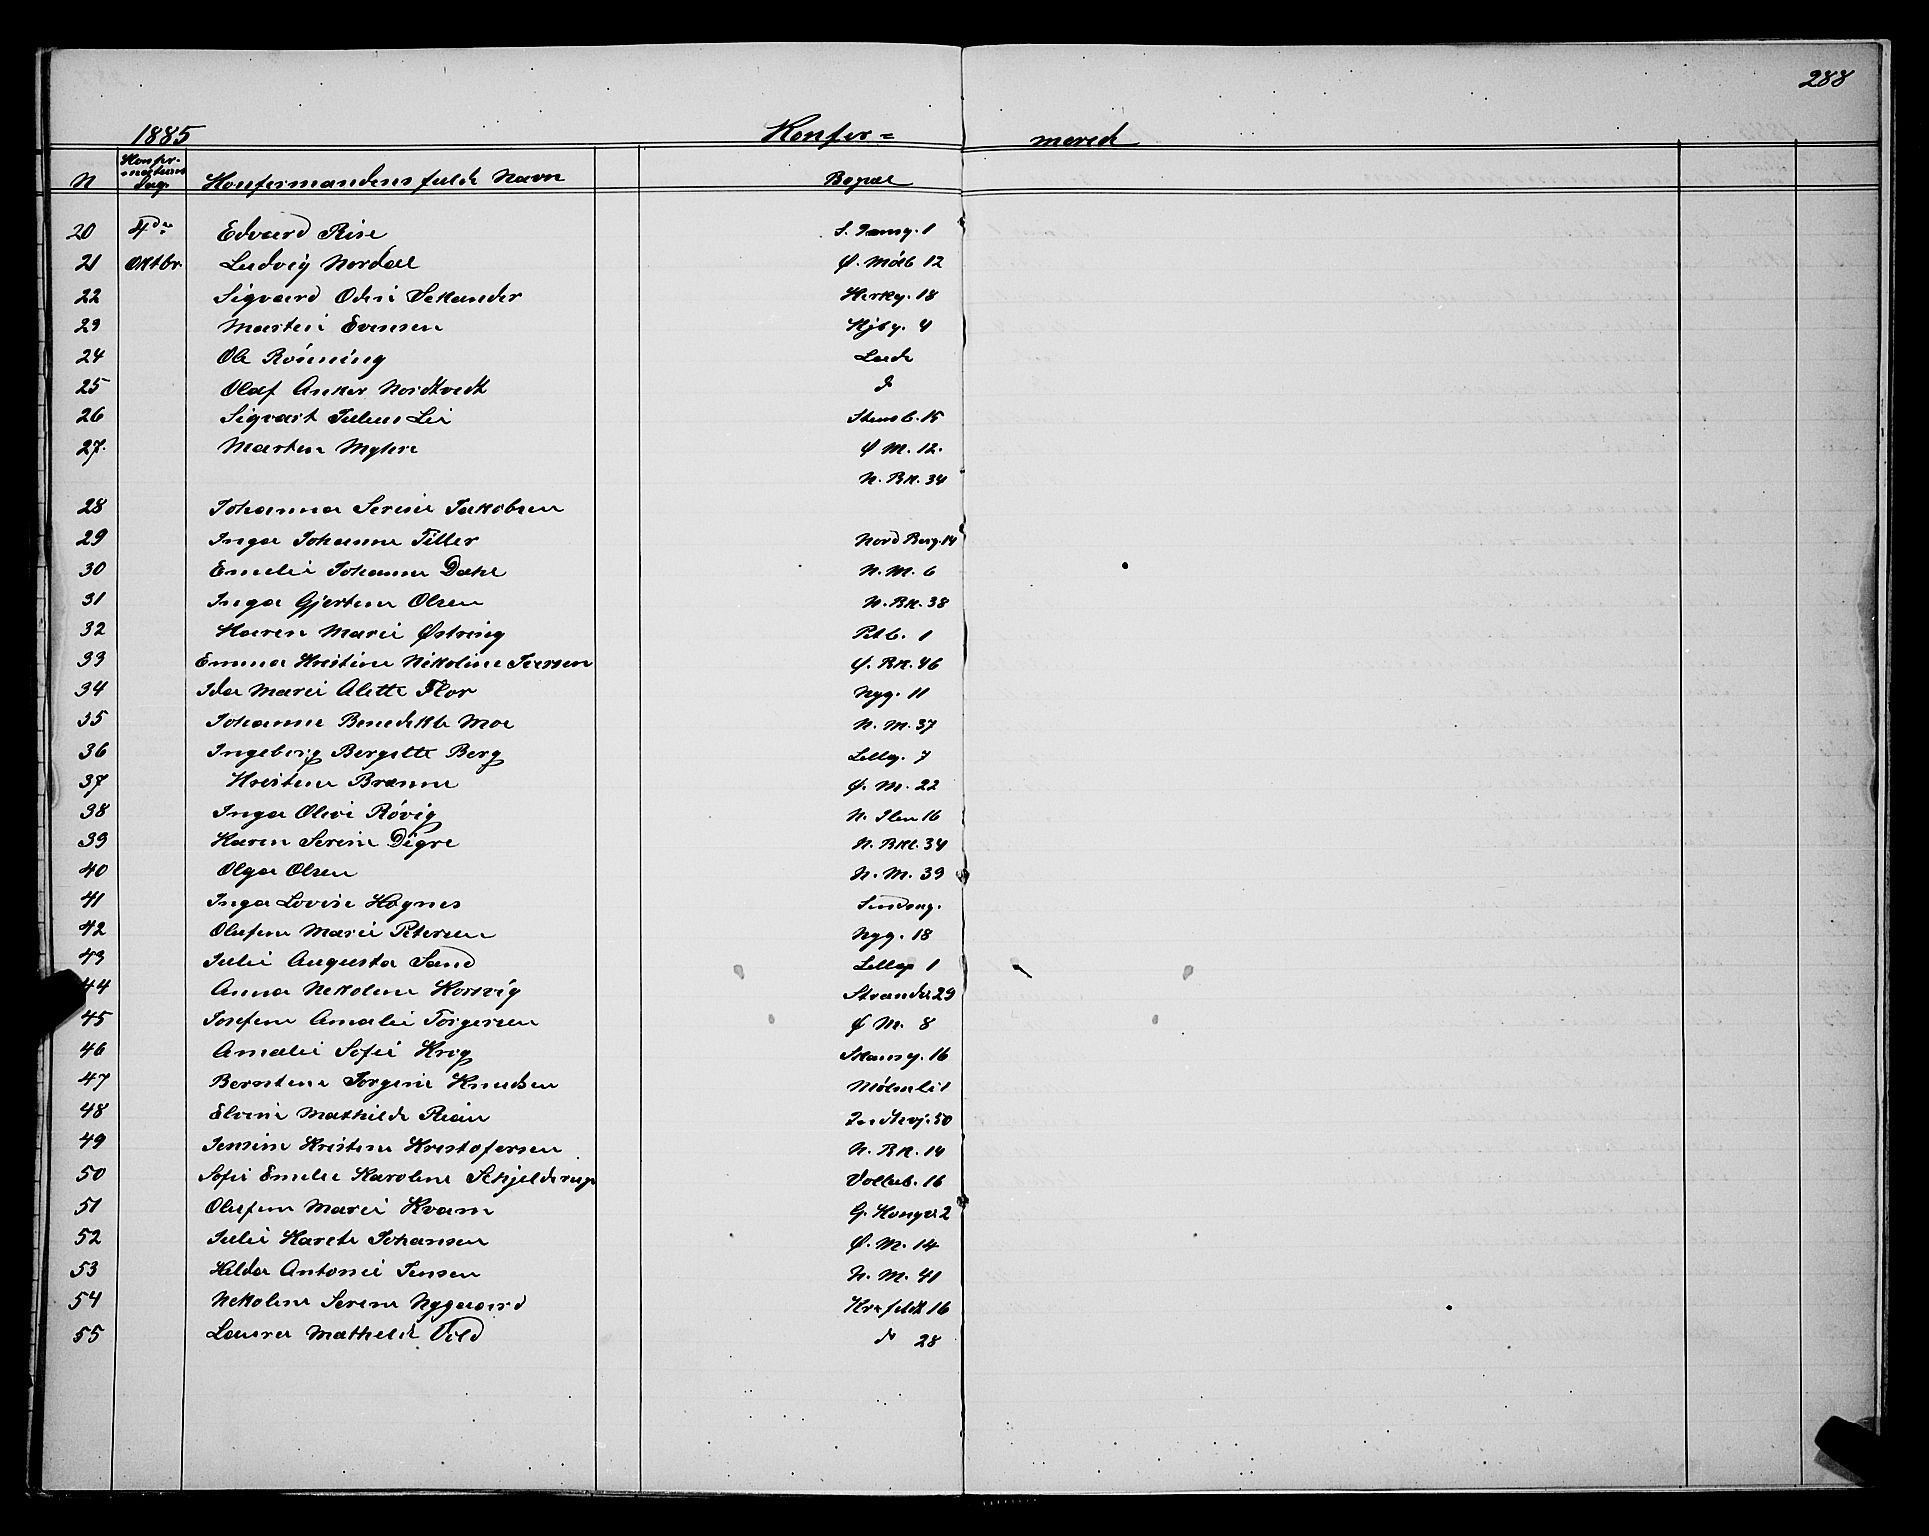 288
1885 Konfer= mered
N Konfer-mations Dag. Konfirmandens fulde Navn Bopæl
20 4de Edvard Rise
21 Oktbr. Ludvig Nordal Ø. Möll 12
22 Sigvard Odin Sekander Herkg. 18
23 Martin Evensen Kjbg. 4
24 Ole Rönning Lade
25 Olaf Anker Nordtvedt d
26 Sigvart Julius Lie Stensb. 15
27. Martin Myhre Ø M. 12.
N. BK. 34
28 Johanna Serine Jakobsen
29 Inga Johanne Tiller Nord Berg. 14
30 Emelie Johanne Dahl N. M. 6
31 Inga Gjertine Olsen N. BK. 38
32 Karen Marie Østring Petb. 1
33 Emma Kristine Nikoline Iversen Ø. BK. 46
34 Ida Marie Alette Flor Nyg. 11
35 Johanne Benedikte Moe N. M. 37
36 Ingeborg Bergitte Berg Lillg. 7
37 Kristine Brænne Ø. M. 22
38 Inga Olive Røvig N. Ilen 16
39 Karen Serine Digre N. BKl. 34
40 Olga Olsen N. M. 39
41 Inga Lovise Høgnes
42 Olufine Marie Petersen Nyg. 18
43 Julie Augusta Sand Lillg 1
44 Anna Nikoline Korsvig Strandv 29
45 Josefine Amalie Torgersen Ø M. 8
46 Amalie Sofie Krog 16
47 Berntine Jørgine Knudsen
48 Elvine Mathilde Rian 50
49 Jensine Kristine Kristofersen N. BK. 14
50 Sofie Emelie Karoline Schjelderup Vollab. 16
51 Olufine Marie Kvam G. Kongev 2
52 Julie Karete Johansen Ø. M. 14
53 Hilda Antonie Jensen N. M. 41
54 Nikoline Serine Nygaard Krefeldt 16
55 Laura Mathilde Vold do 28